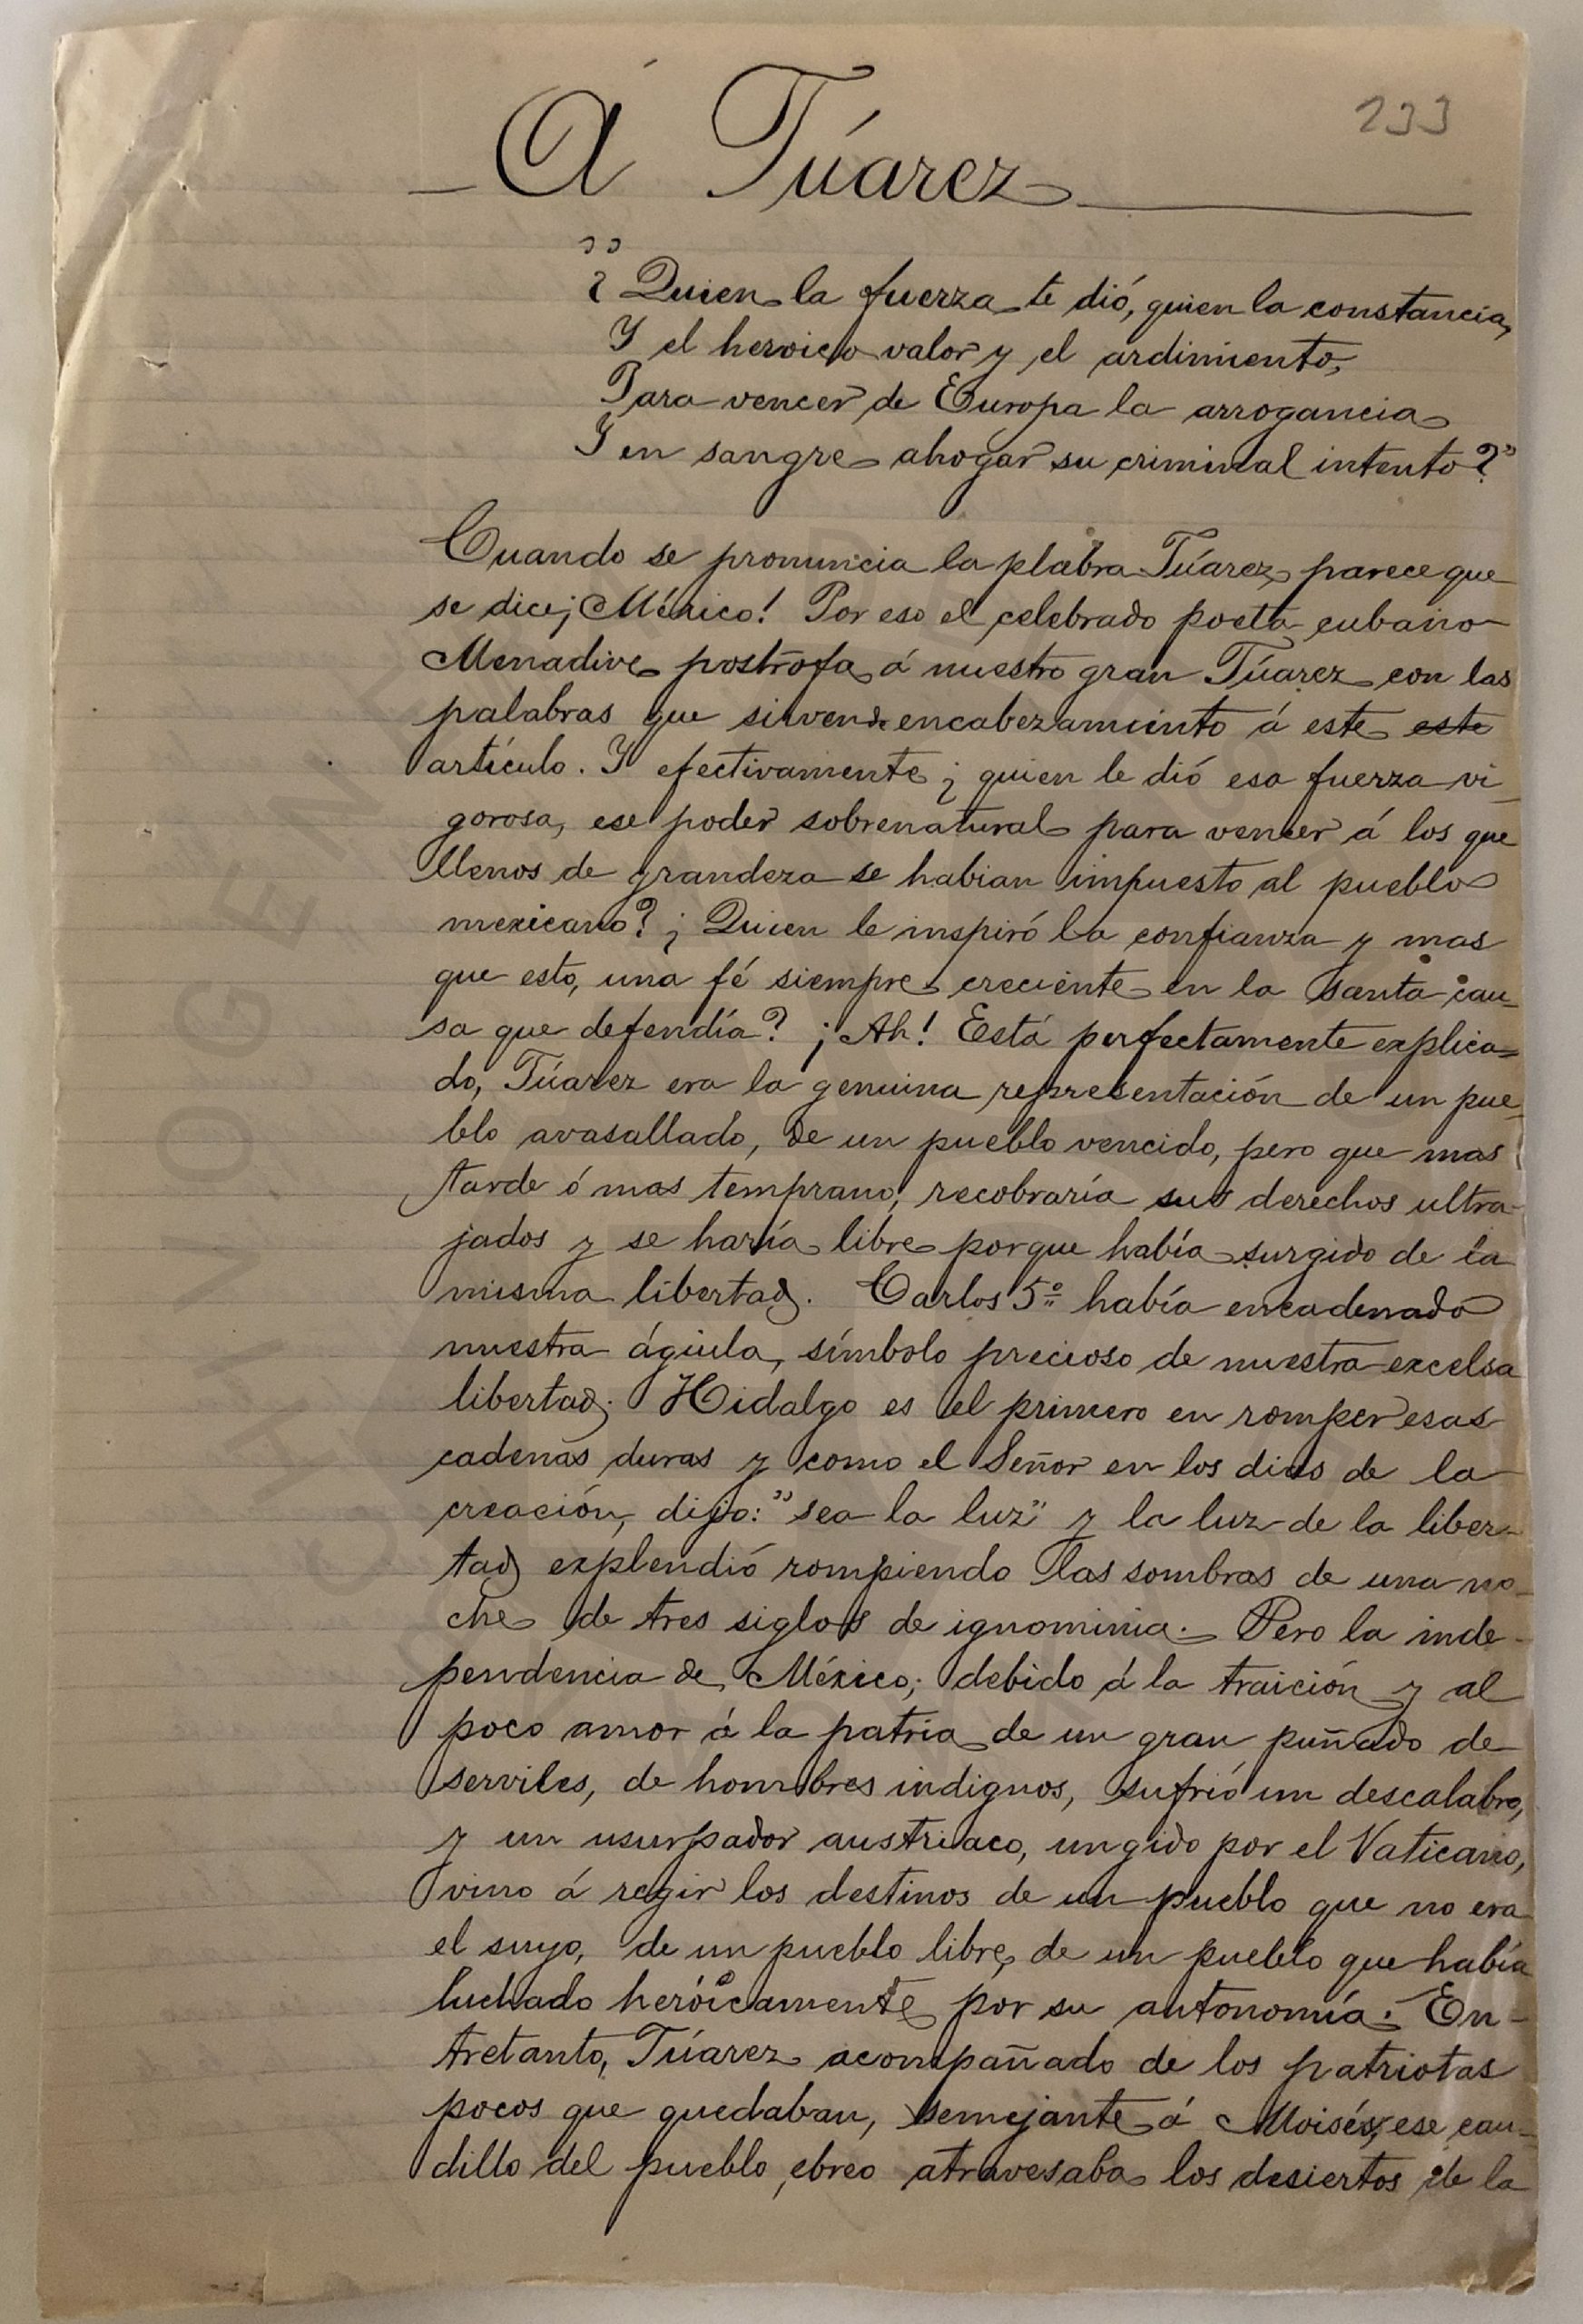 233
Á Júarez
"¿Quien la fuerza te dió, quien la constancia,
Y el heroico valor y el ardimiento,
Para vencer de Europa la arrogancia
Y en sangre ahogar su criminal intento?"
Cuando se pronuncia la plabra Júarez, parece que
se dice ¡México! Por eso el celebrado poeta cubano
Menadive postrofa á nuestro gran Júarez con las
palabras que sirven de encabezamiento á este este
artículo. Y efectivamente ¿quien le dió esa fuerza vi-
gorosa, ese poder sobrenatural para vencer á los que
llenos de grandeza se habian impuesto al pueblo
mexicano? ¿Quien le inspiró la confianza y mas
que esto, una fé siempre creciente en la santa cau-
sa que defendía? ¡Ah! Está perfectamente explica-
do, Júarez era la genuina representación de un pue-
blo avasallado, de un pueblo vencido, pero que mas
tarde ó mas temprano, recobraría sus derechos ultra-
jados y se haría libre porque había surgido de la
misma libertad. Carlos 5º había encadenado
nuestra águila, símbolo precioso de nuestra excelsa
libertad; Hidalgo es el primero en romper esas
cadenas duras y como el Señor en los dias de la
creación, dijo: "sea la luz" y la luz de la liber-
tad explendió rompiendo las sombras de una no-
che de tres siglos de ignominia. Pero la inde-
pendencia de México; debido á la traición y al
poco amor á la patria de un gran puñado de
serviles, de hombres indignos, sufrió un descalabro,
y un usurpador austriaco, ungido por el Vaticano,
vino á regir los destinos de un pueblo que no era
el suyo, de un pueblo libre, de un pueblo que había
luchado heróicamente por su autonomía. En-
tretanto, Júarez acompañado de los patriotas
pocos que quedaban, semejante á Moisés, ese cau-
dillo del pueblo ebreo atravesaba los desiertos de la